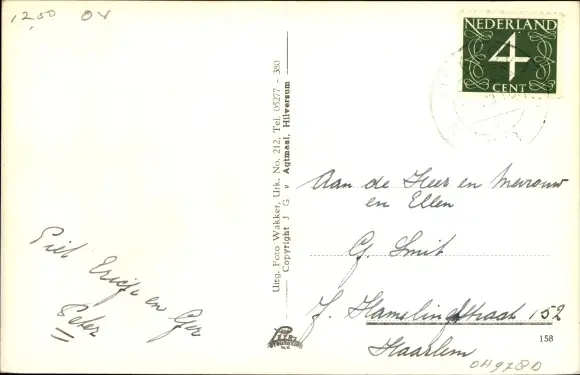 12,00 OV
NEDERLAND
4
CENT
Uitg. Foto Wakker, Urk. No. 212, Tel. 05277 - 380
Copyright J G v Agtmaal, Hilversum
Aan de Heer en Mevrouw
en Ellen
G. Smit
J. Hamelingstraat 152
Haarlem
Piet Eriefje en Ger
Peter
158
049780